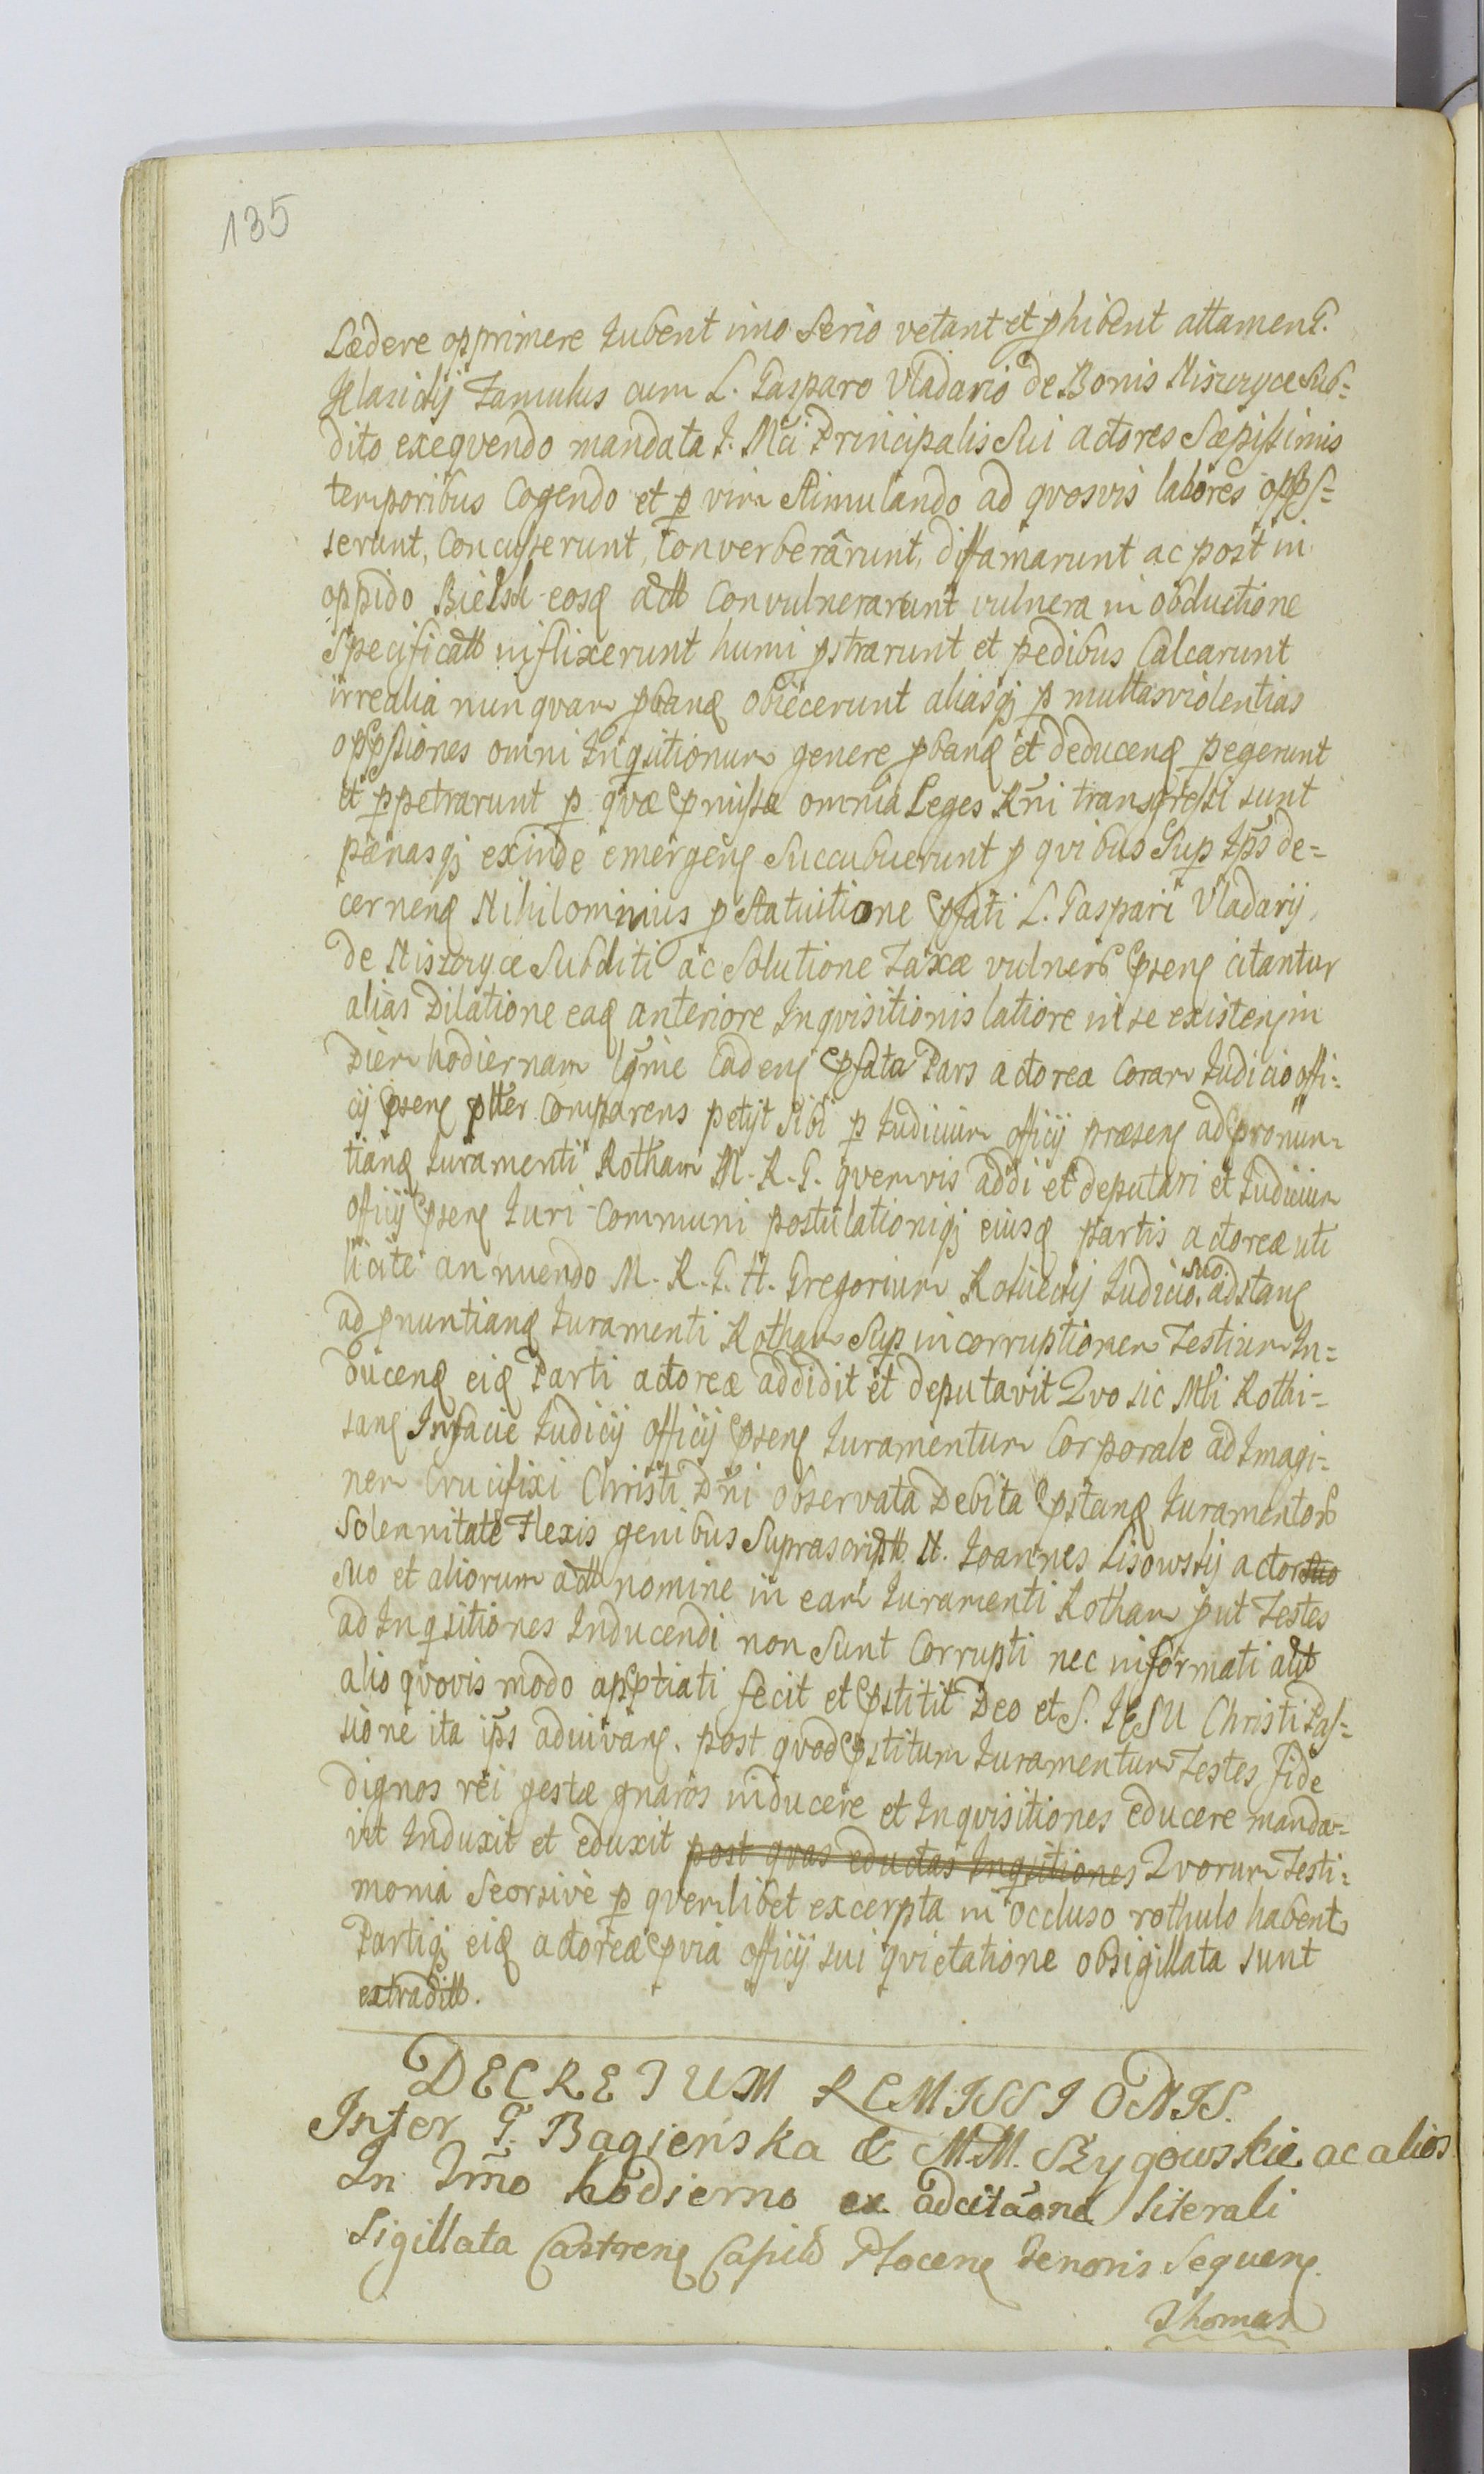 135
Lædere opprimere Iubent imo Serio vetant et phibent attamen G.
Famulus cum L. Gasparo Vladario de Bonis Niszczyce Sub=
dito exeqvendo mandata I. Mci Principalis Sui actores Sæpissimis
temporibus Cogendo et p vim Stimulando ad qvosvis labores opps=
serunt, Concusserunt, Converberârunt, diffamarunt ac post in
oppido Bielsk eosq actt Convulnerarunt vulnera in obductione
Specificatt inflixerunt humi pstrarunt et pedibus Calcarunt
irrealia nunqvam pbanq obiecerunt aliasqj p multas violentias
oppsiones omni Inqsitionum genere pbanq et deducenq pegerunt
et ppetrarunt p qvæ pmissa omnia Leges Rni transgressi sunt
pænasqj exinde emergenq Succubuerunt p qvibus Sup Ips de=
cernenq Nihilominus p Statuitione psati L. Gaspari Vladarij
de Niszczyce Subditi ac Solutione Taxæ vulner psenq citantur
alias Dilatione eaq anteriore Inqvisitionis latiore in se existenq in
Diem hodiernam Cadenq psata Pars actorea Coram Iudicio offi=
cij psenq ptter Comparens petijt Sibi p Iudicium officij præsenq ad pronun=
tianq Iuramenti Rotham M. R. G. qvemvis addi et deputari et Iudicium
officij psenq Iuri Communi postulationiqj eiusq partis actoreæ uti
licite annuendo M. R. G. N. Gregorium Iudicio suo adstanq
ad pnuntianq Iuramenti Rotham Sup incorruptionem Testium In=
ducenq eiq Parti actoreæ addidit et deputavit Qvo sic Mbi Rothi=
sanq In facie Iudicij officij psenq Iuramentum Corporale ad Imagi=
nem Crucifixi Christi Dni observata Debita pstanq Iuramentor
Solennitate Flexis genibus Suprascriptt N. Ioannes Lisowskij actor suo
suo et aliorum actt nomine in eam Iuramenti Rotham put Testes
ad Inqsitiones Inducendi non Sunt Corrupti nec informati aut
alio qvovis modo apptiati fecit et pstitit Deo et S. IESU Christi Pas=
sione ita ips adiuvanq. post qvod pstitum Iuramentum Testes fide
dignos rei gestæ gnaros inducere et Inqvisitiones educere manda=
vit Induxit et eduxit post qvas eductas Inqsitiones Qvorum Testi=
monia Seorsive p qvemlibet excerpta in occluso rothulo habent
Partiqj eiq actoreæ pvia officij sui qvietatione obsigillata sunt
extraditt.
DECRETUM REMISSIONIS.
Inter G. Bagieńska & M.M. Szygowskie ac alios
In Trno hodierno ex adcitaone literali
Sigillata Castrenq Capitd Plocenq tenoris Sequenq.
Thomas